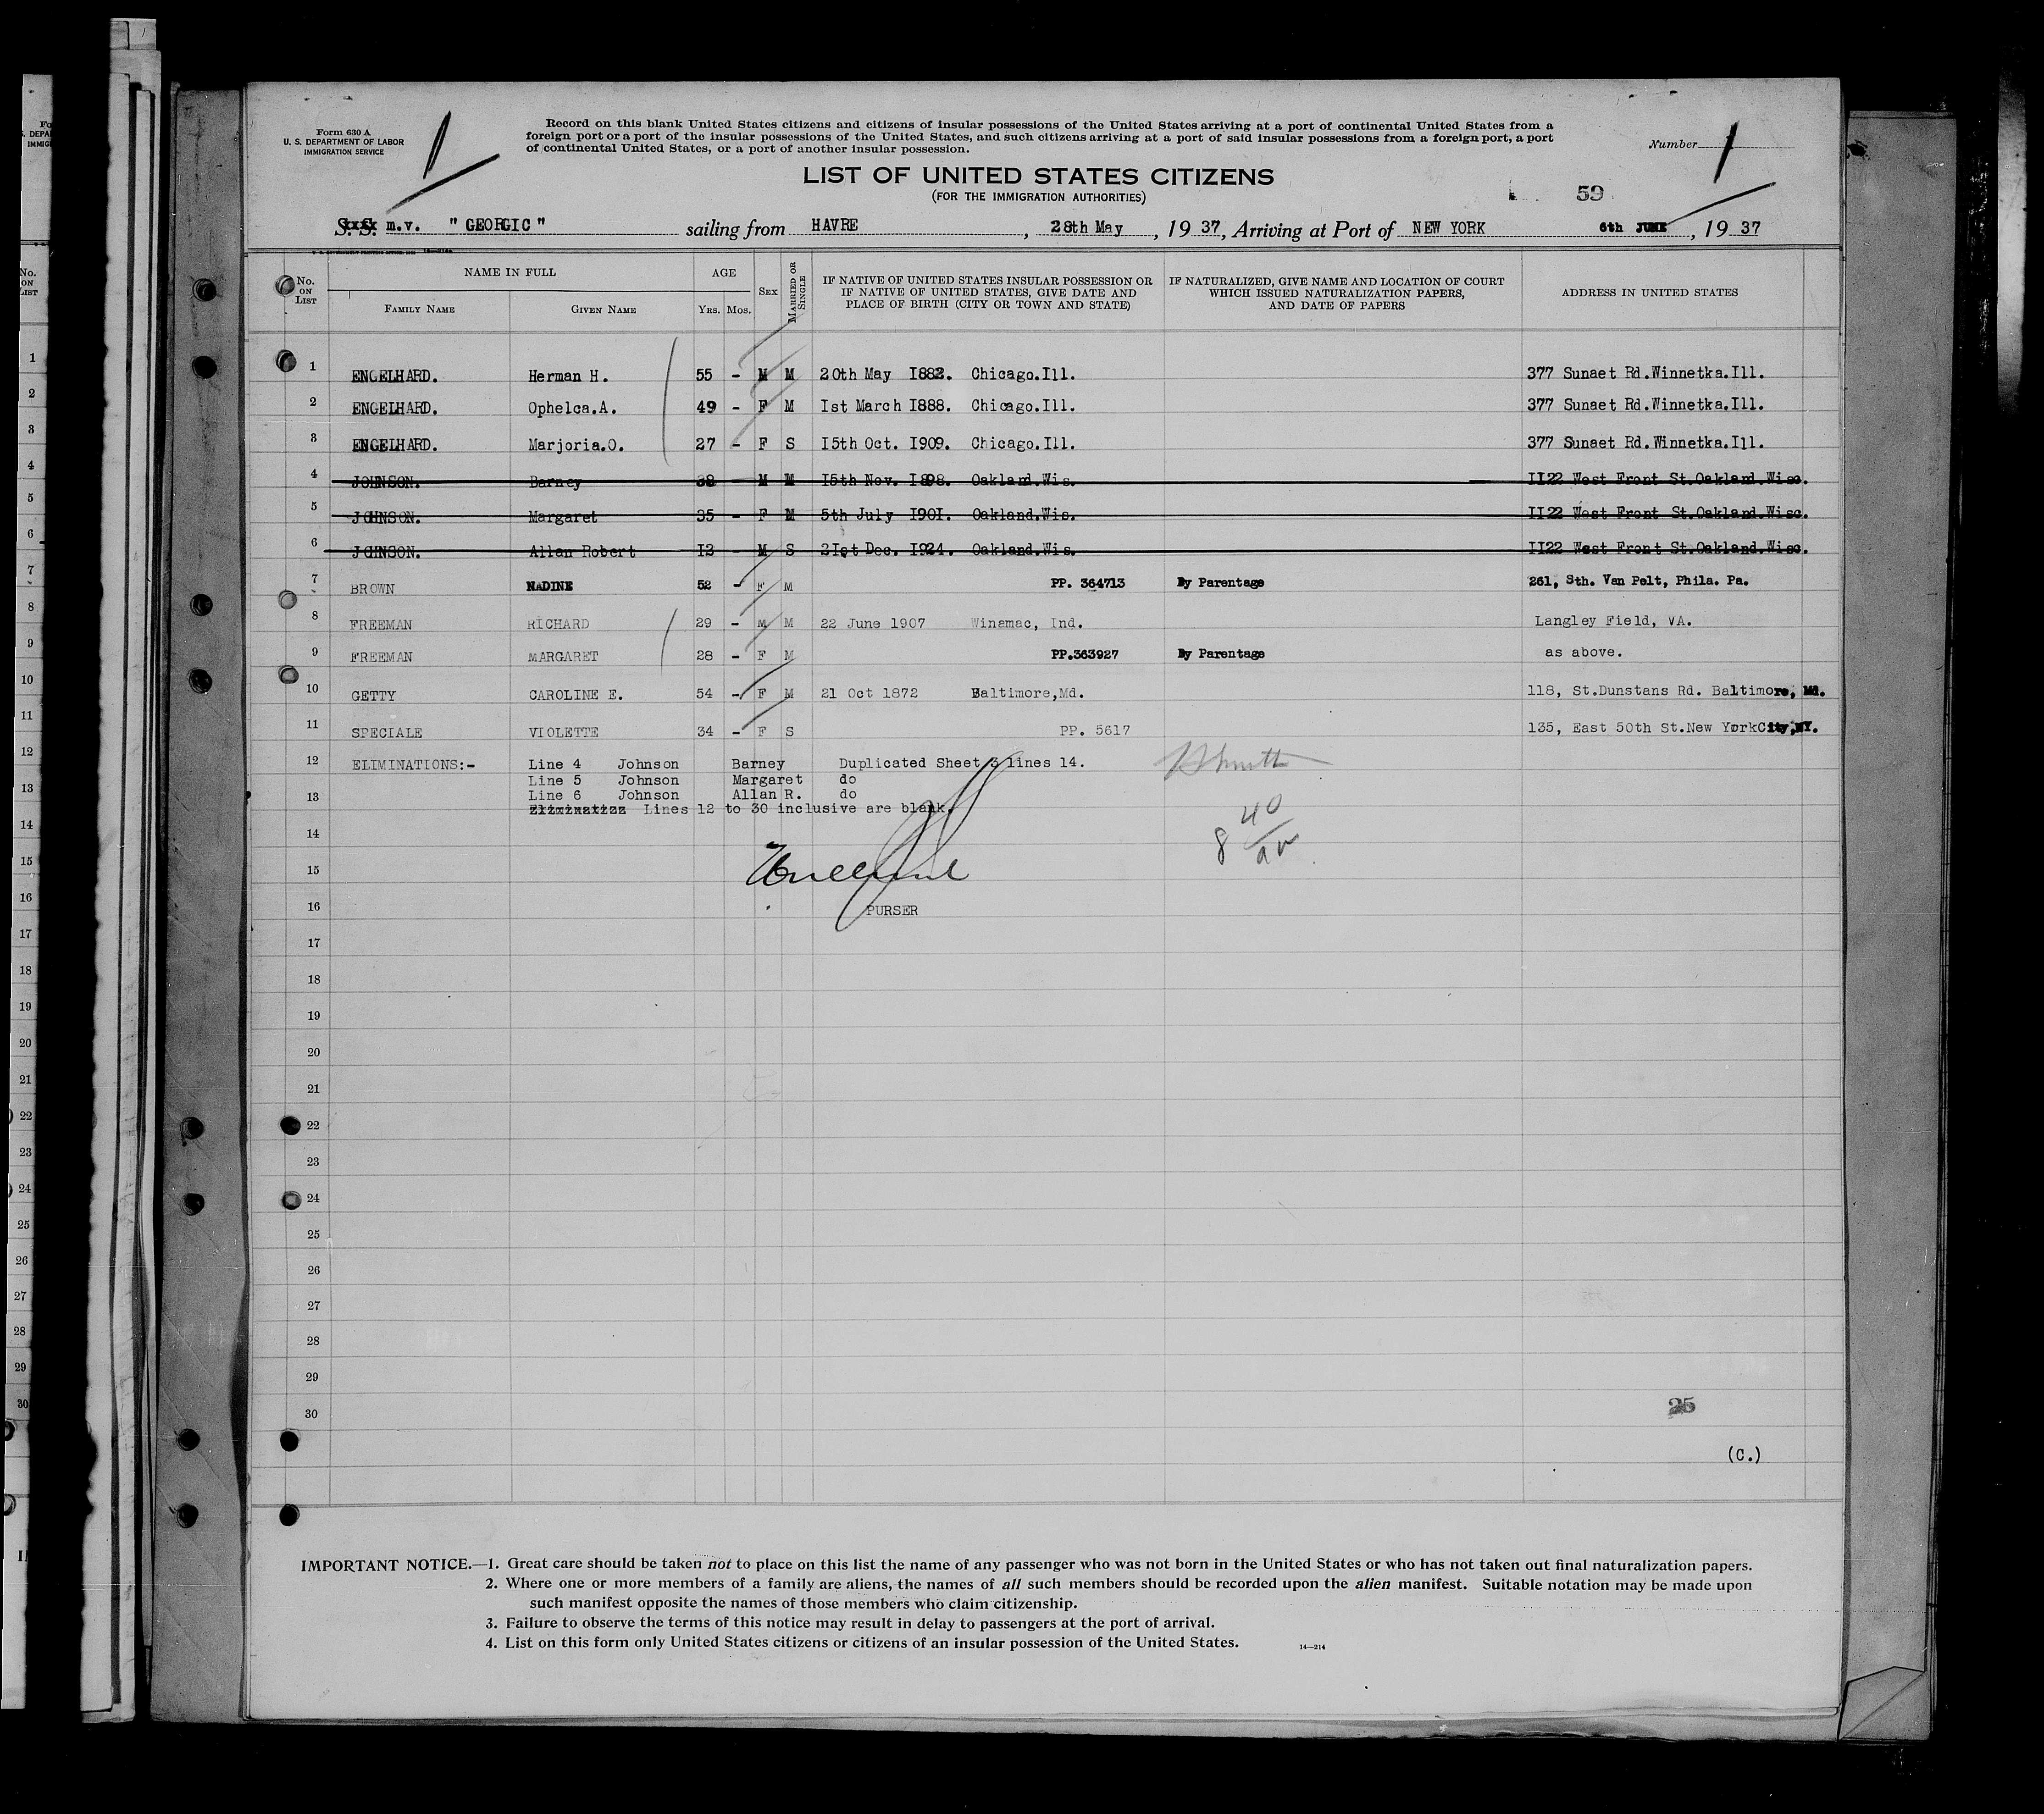 Form 630 A
U. S. DEPARTMENT OF LABOR
IMMIGRATION SERVICE
1
Record on this blank United States citizens and citizens of insular possessions of the United States arriving at a port of continental United States from a
foreign port or a port of the insular possessions of the United States, and such citizens arriving at a port of said insular possessions from a foreign port, a port
of continental United States, or a port of another insular possession.
Number 1
LIST OF UNITED STATES CITIZENS
(FOR THE IMMIGRATION AUTHORITIES)
59
S. S. m.v. " GEORGIC " sailing from HAVRE , 28th May , 19 37, Arriving at Port of NEW YORK 6th JUNE , 19 37
No. ON LIST
NAME IN FULL
FAMILY NAME GIVEN NAME
AGE
YRS. MOS.
SEX
MARRIED OR SINGLE
IF NATIVE OF UNITED STATES INSULAR POSSESSION OR
IF NATIVE OF UNITED STATES, GIVE DATE AND
PLACE OF BIRTH (CITY OR TOWN AND STATE)
IF NATURALIZED, GIVE NAME AND LOCATION OF COURT
WHICH ISSUED NATURALIZATION PAPERS,
AND DATE OF PAPERS
ADDRESS IN UNITED STATES
1 ENGELHARD. Herman H. 55 - M M 20th May I882. Chicago.Ill. 377 Sunaet Rd.Winnetka.Ill.
2 ENGELHARD. Ophelca.A. 49 - F M Ist March I888. Chicago.Ill. 377 Sunaet Rd.Winnetka.Ill.
3 ENGELHARD. Marjoria.O. 27 - F S I5th Oct. I909. Chicago.Ill. 377 Sunaet Rd.Winnetka.Ill.
4 JOHNSON. Barney 38 - M M I5th Nov. I898. Oakland.Wis. II22 West Front St.Oakland.Wisc.
5 JOHNSON. Margaret 35 - F M 5th July I90I. Oakland.Wis. II22 West Front St.Oakland.Wisc.
6 JOHNSON. Allan Robert I2 - M S 2Ist Dec. I924. Oakland.Wis. II22 West Front St.Oakland.Wisc.
7 BROWN NADINE 52 - F M PP. 364713 By Parentage 261, Sth. Van Pelt, Phila. Pa.
8 FREEMAN RICHARD 29 - M M 22 June 1907 Winamac, Ind. Langley Field, VA.
9 FREEMAN MARGARET 28 - F M PP.363927 By Parentage as above.
10 GETTY CAROLINE E. 54 - F M 21 Oct 1872 Baltimore,Md. 118, St.Dunstans Rd. Baltimore, Md.
11 SPECIALE VIOLETTE 34 - F S PP. 5617 135, East 50th St.New YorkCity,NY.
12 ELIMINATIONS:- Line 4 Johnson Barney Duplicated Sheet 3 lines 14.
Line 5 Johnson Margaret do
13 Line 6 Johnson Allan R. do
Elimination Lines 12 to 30 inclusive are blank.
14
15
16 PURSER
17
18
19
20
21
22
23
24
25
26
27
28
29
30
25
(C.)
IMPORTANT NOTICE.—1. Great care should be taken not to place on this list the name of any passenger who was not born in the United States or who has not taken out final naturalization papers.
2. Where one or more members of a family are aliens, the names of all such members should be recorded upon the alien manifest. Suitable notation may be made upon
such manifest opposite the names of those members who claim citizenship.
3. Failure to observe the terms of this notice may result in delay to passengers at the port of arrival.
4. List on this form only United States citizens or citizens of an insular possession of the United States. 14—214